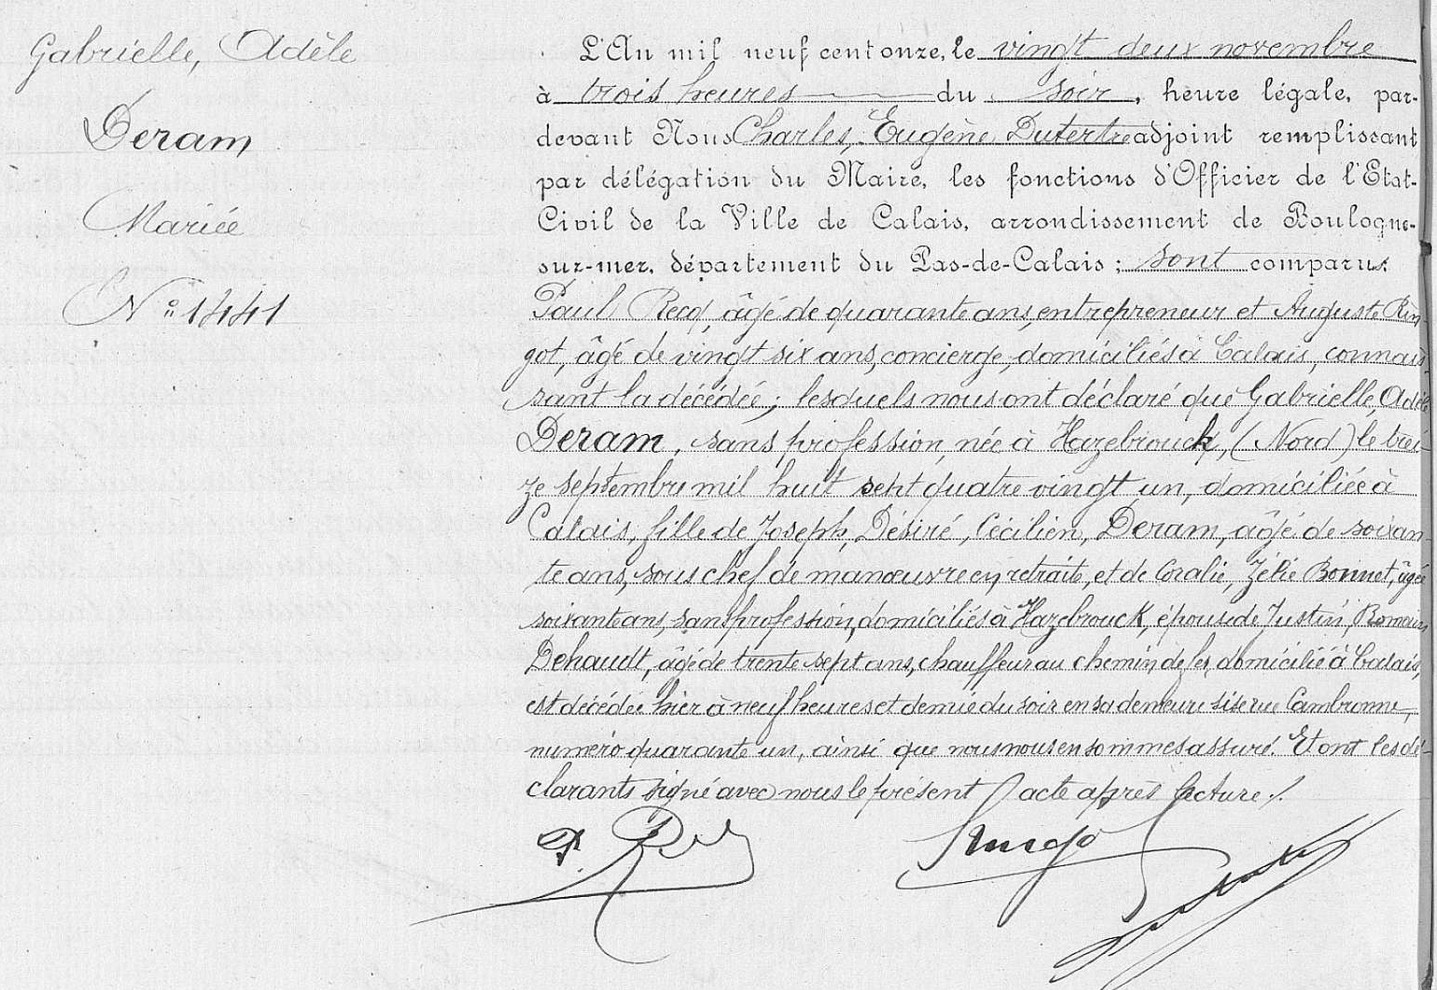 Gabrielle, Adèle
Deram
Mariée
N° 1441
L'An mil neuf cent onze, le vingt deux novembre
à trois heures du soir, heure légale, par-
devant Nous Charles, Eugène Dutertre adjoint remplissant
par délégation du Maire, les fonctions d'Officier de l'Etat-
Civil de la Ville de Calais, arrondissement de Boulogne-
sur-mer, département du Pas-de-Calais ; sont comparus
Paul Recq, âgé de quarante ans, entrepreneur et Auguste Rin-
got, âgé de vingt six ans, concierge, domiciliés à Calais, connais
sant la décédée ; lesquels nous ont déclaré que Gabrielle, Adèle
Deram, sans profession, née à Hazebrouck, (Nord) le trei
ze septembre mil huit sept quatre vingt un, domiciliée à
Calais, fille de Joseph, Désiré, Cécilien, Deram, âgé de soixan-
te ans, sous chef de manœuvre en retraite, et de Coralie, Zélie Bonnet, âgée
soixante ans, sans profession, domiciliés à Hazebrouck, épouse de Justin, Romain
Dehaudt, âgé de trente sept ans, chauffeur au chemin de fer, domicilié à Calais,
est décédée hier à neuf heures et demie du soir en sa demeure sise rue Cambronne,
numéro quarante un, ainsi que nous nous en sommes assuré. Et ont les dé-
clarants signé avec nous le présent acte après lecture ./.